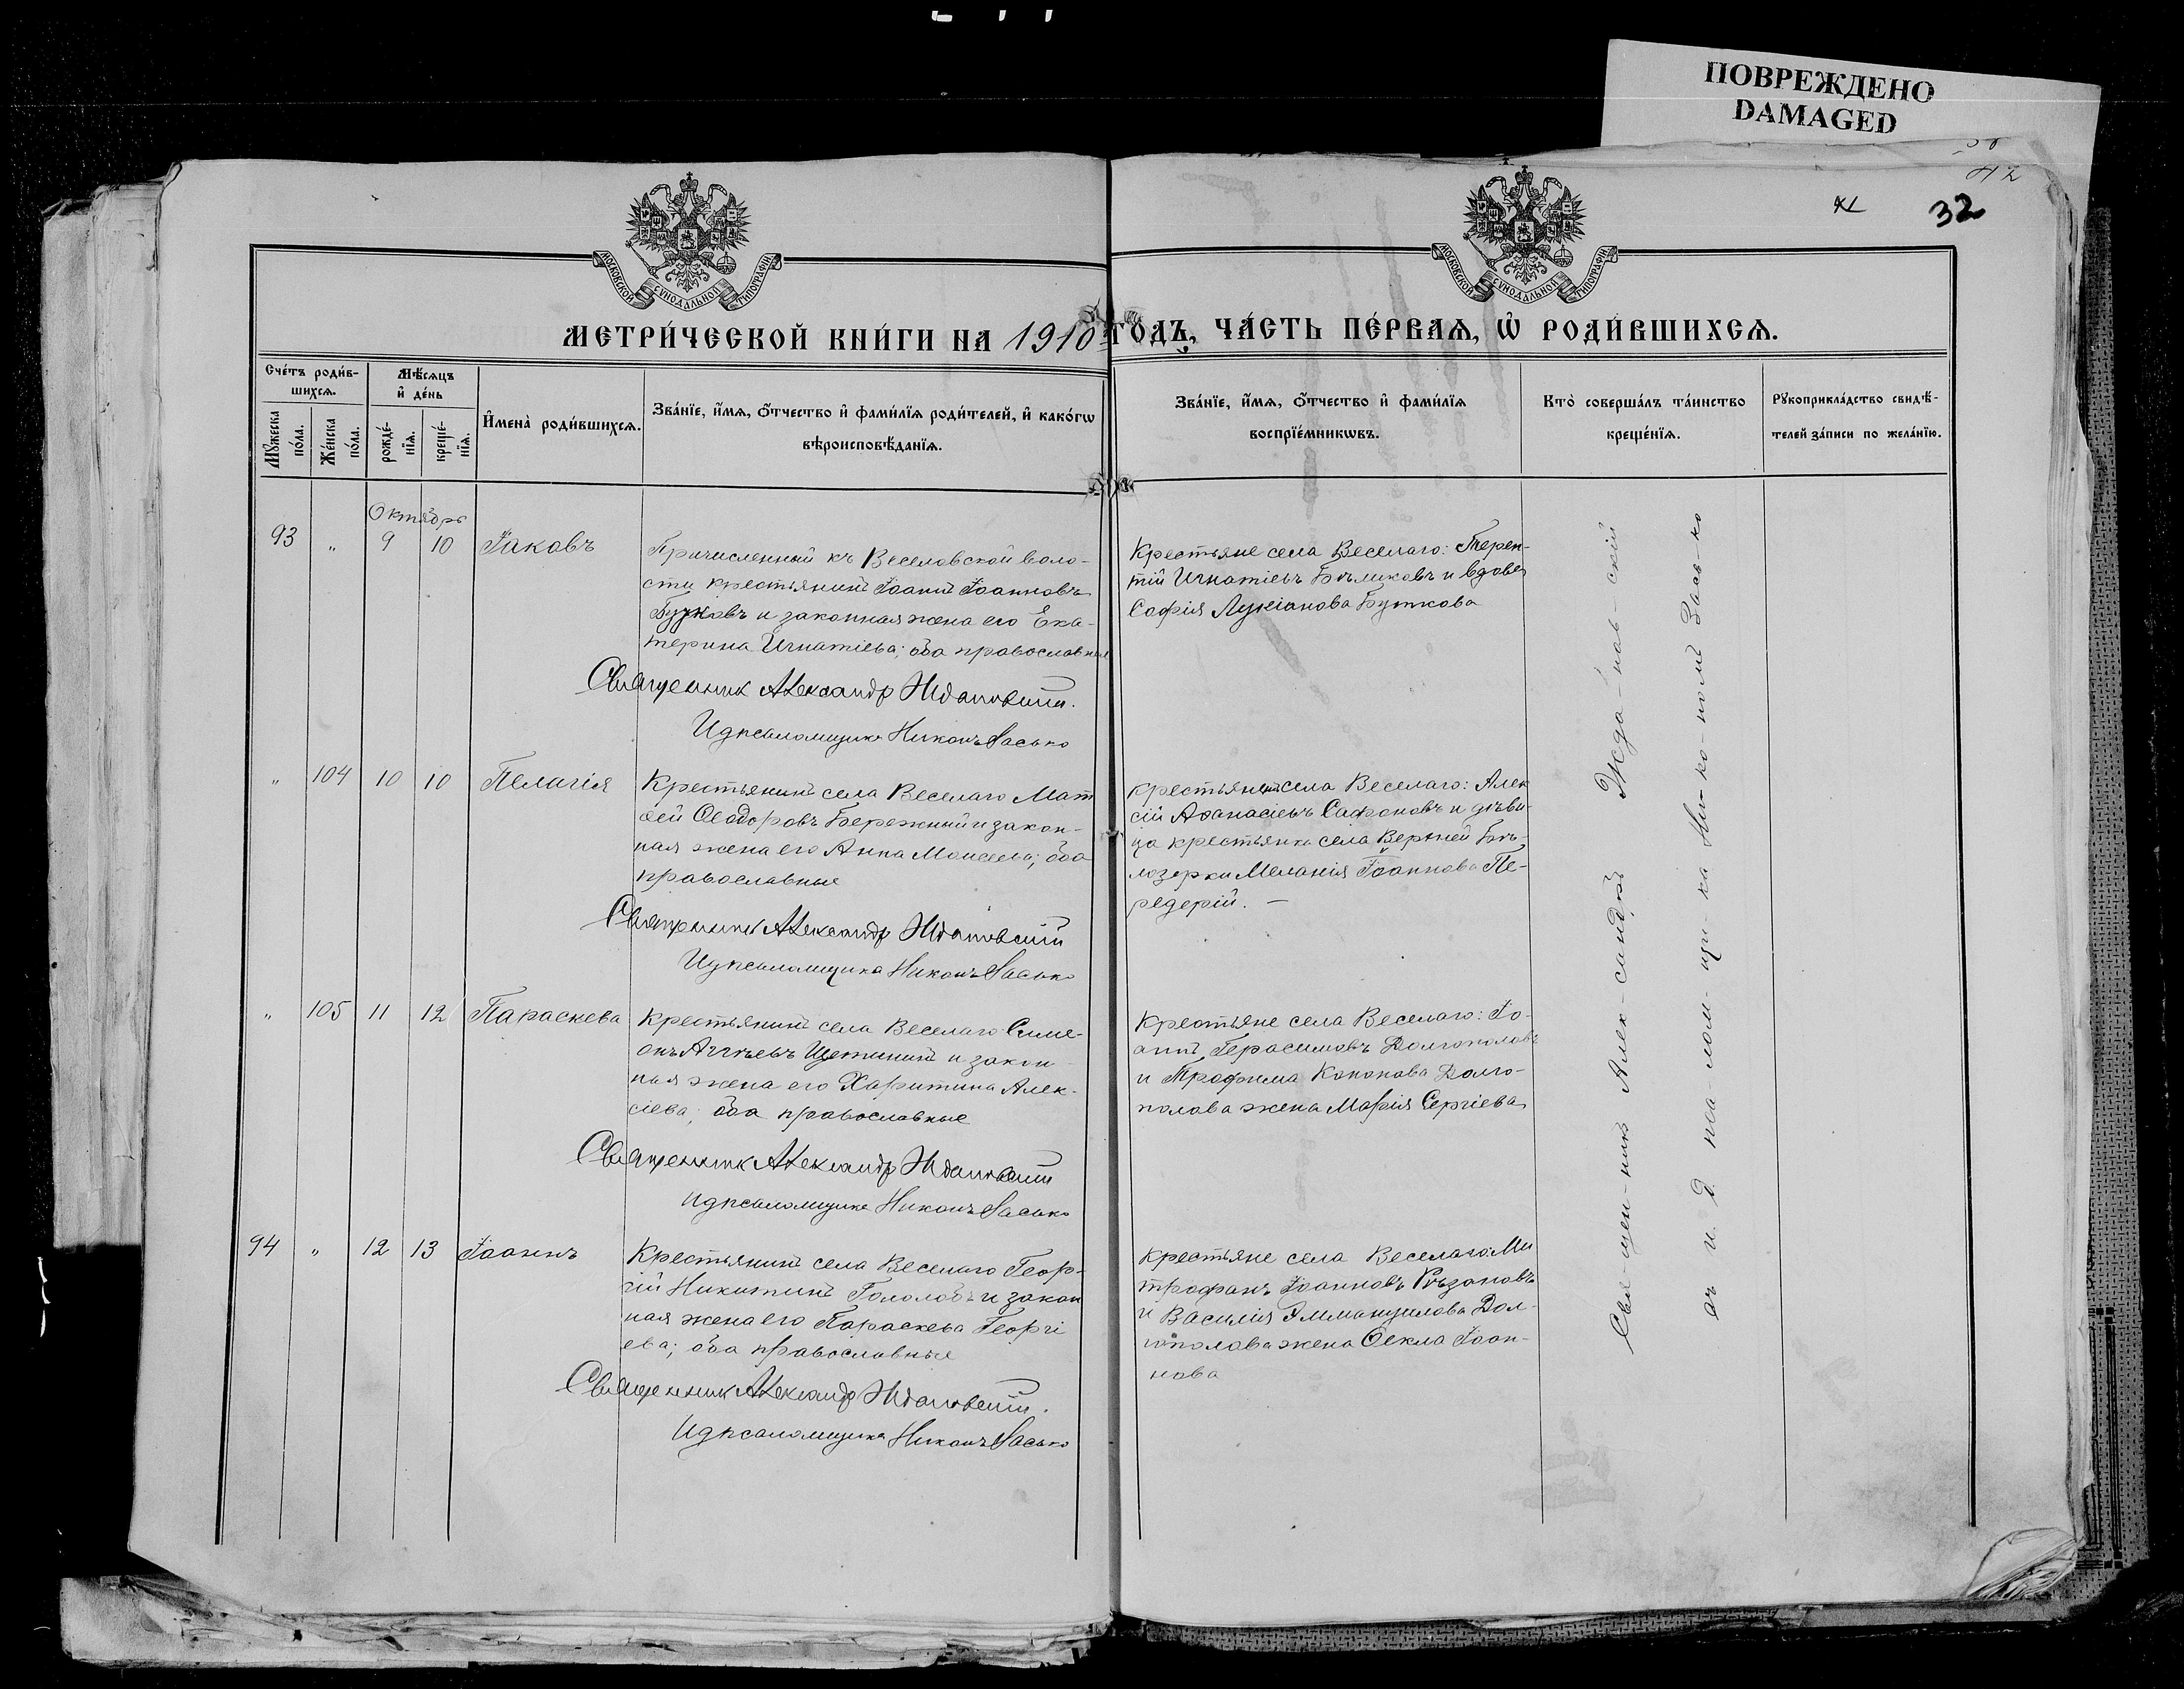 ПОВРЕЖДЕНО
DAMAGED
42
32
МОСКОВСКОЙ СѴНОДАЛЬНОЙ ТИПОГРАФІИ
МОСКОВСКОЙ СѴНОДАЛЬНОЙ ТИПОГРАФІИ
МЕТРИ́ЧЕСКОЙ КНИ́ГИ НА 1910 ГОДЪ, ЧА́СТЬ ПЕ́РВАЯ, Ѡ РОДИ́ВШИХСЯ.
Сче́тъ роди́в-
шихся.
Мѹ́жеска по́ла.
Же́нска по́ла.
Мѣ́сяцъ
и де́нь
рожде́-
нїя.
креще́-
нїя.
Имена̀ роди́вшихся.
Зва́нїе, и́мя, о́тчество и фами́лїя роди́телей, и како́гѡ
вѣроисповѣ́данїя.
Зва́нїе, и́мя, о́тчество и фами́лїя
воспрїе́мникѡвъ.
Кто̀ соверша́лъ та́инство
креще́нїя.
Рѹкоприкла́дство свидѣ́-
телей за́писи по жела́нїю.
Октябрь
93 " 9 10 Іаковъ
Причисленный къ Веселовской воло-
сти крестьянинъ Іоаннъ Іоанновъ
и законная жена его Ека-
терина Игнатіева; оба православные
Священник Александр Ждановский.
И д псаломщика Никонъ Засько
Крестьяне села Веселаго: Терен-
тій Игнатіевъ Бѣликовъ и вдова
Софія Лукіанова Буткова
" 104 10 10 Пелагія
Крестьянинъ села Веселаго Мат
ѳей Ѳеодоровъ Бережный и закон-
ная жена его Анна Моисеева; оба
православные
Священникъ Александр Ждановский
И д псаломщика Никонъ Засько
крестьянинъ села Веселаго: Алек
сій Аѳанасіевъ Сафоновъ и дѣви-
ца крестьянка села Верхней Бѣ-
лозерки Меланія Іоаннова Пе-
редерій. —
" 105 11 12 Параскева
Крестьянинъ села Веселаго Симе-
онъ Аггѣевъ Щетининъ и закон-
ная жена его Харитина Алек-
сіева; оба православные
Священник Александр Ждановский
И д псаломщика Никонъ Засько
Крестьяне села Веселаго: Іо-
аннъ Герасимовъ Долгополовъ
и Трофима Кононова Долго-
полова жена Марія Сергіева
94 " 12 13 Іоаннъ
Крестьянинъ села Веселаго Геор-
гій Никитинъ Гололобъ и закон
ная жена его Параскева Георгі
ева; оба православные
Священник Александр Ждановский.
И д псаломщика Никонъ Засько
Крестьяне села Веселаго: Ми
трофанъ Іоанновъ Рѣзановъ
и Василія Эммануилова Дол-
гополова жена Ѳекла Іоан-
нова
Свя-щен-никъ Алек-сандръ Жда-нов-скій
съ и. д. пса лом-щи-ка Ни-ко-номъ Зась-ко